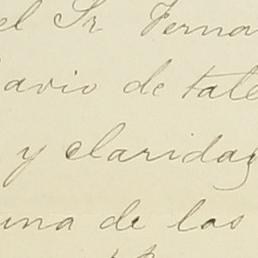 el Sr Ferna
avio de tale
y claridad
una de las